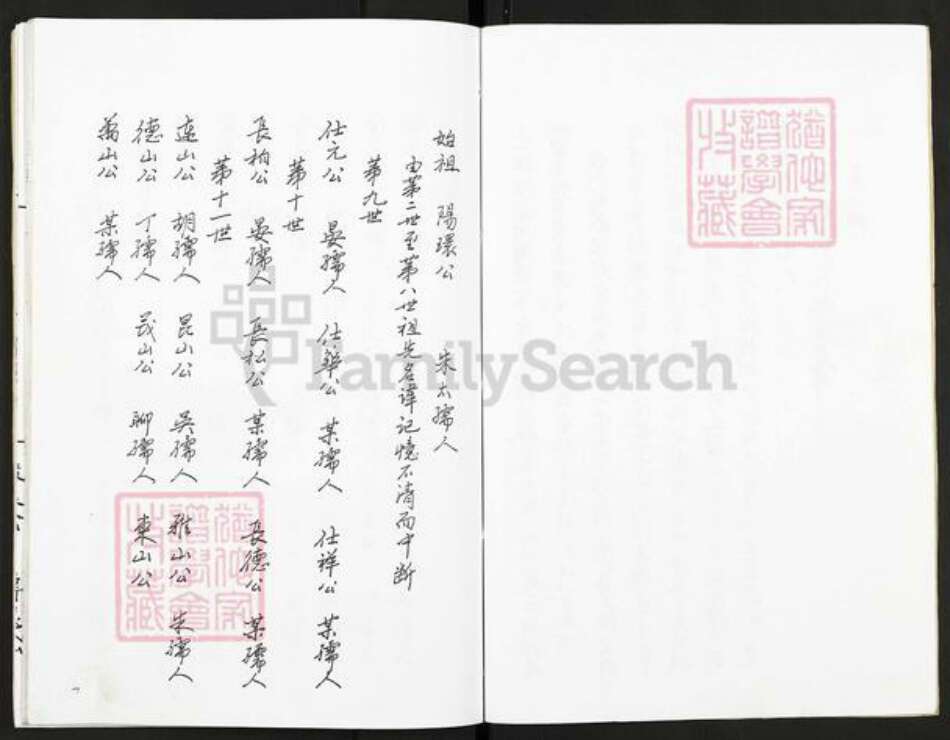 始祖 陽環公 朱太孺人
由第二世至第八世祖先名諱記憶不清而中斷
第九世
仕元公 晏孺人 仕華公 某孺人 仕祥公 某孺人
第十世
長柏公 晏孺人 長松公 某孺人 長德公 某孺人
第十一世
連山公 胡孺人 昆山公 吳孺人 雅山公 朱孺人
德山公 丁孺人 茂山公 聊孺人 東山公
萬山公 某孺人
猶他家
譜學會
收藏
猶他家
譜學會
收藏
FamilySearch